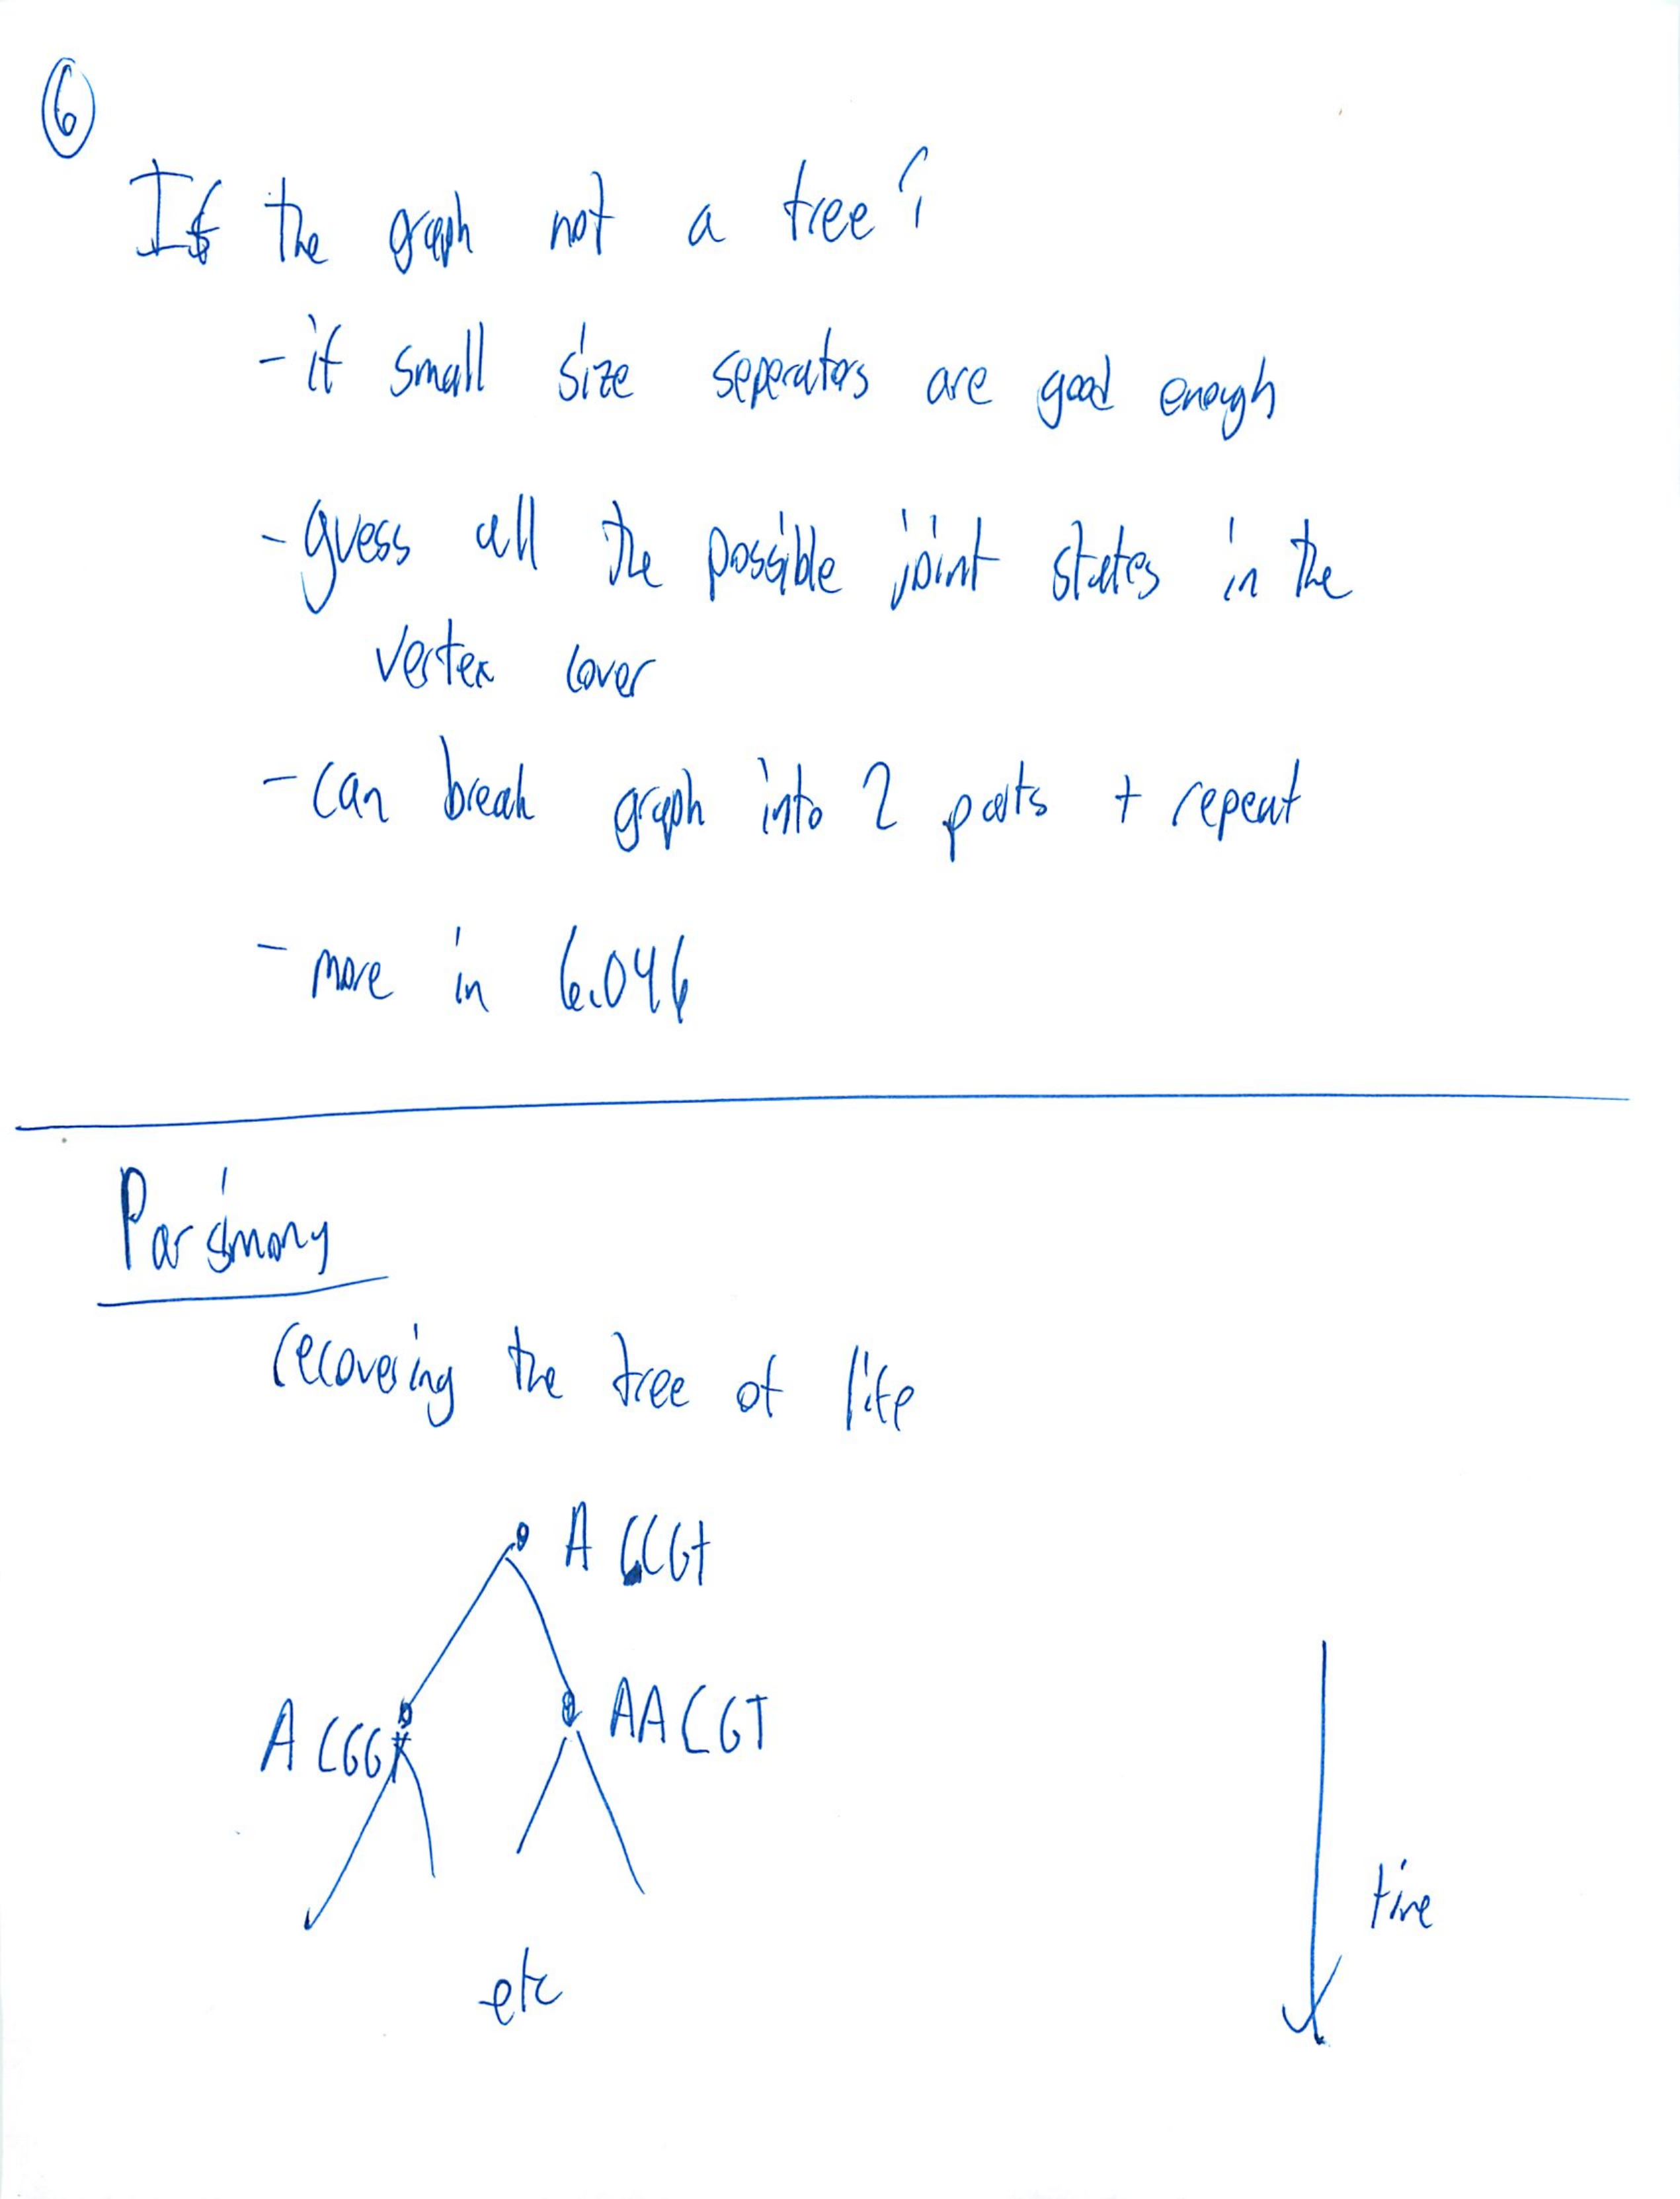 6
If the graph not a tree?
- if small size seperators are good enough
- guess all the possible joint states in the
vertex cover
- can break graph into 2 parts + repeat
- more in 6.046
Parsimony
recovering the tree of life
ACCGT
ACGGT AACGT
time
etc